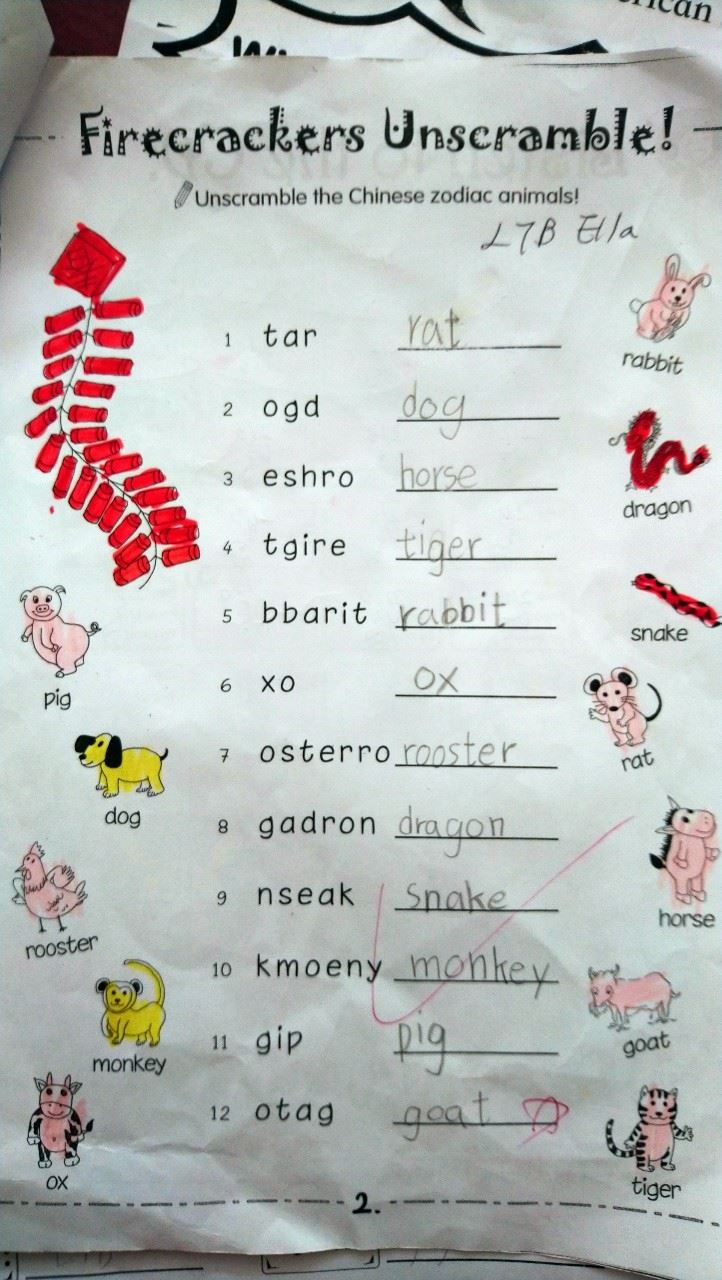 rican
Firecrackers Unscramble!
Unscramble the Chinese zodiac animals!
L7B Ella
1 tar rat
2 ogd dog
3 eshro horse
4 tgire tiger
5 bbarit rabbit
6 xo ox
7 osterro rooster
8 gadron dragon
9 nseak snake
10 kmoeny monkey
11 gip pig
12 otag goat
rabbit
dragon
snake
rat
horse
goat
tiger
pig
dog
rooster
monkey
ox
2.